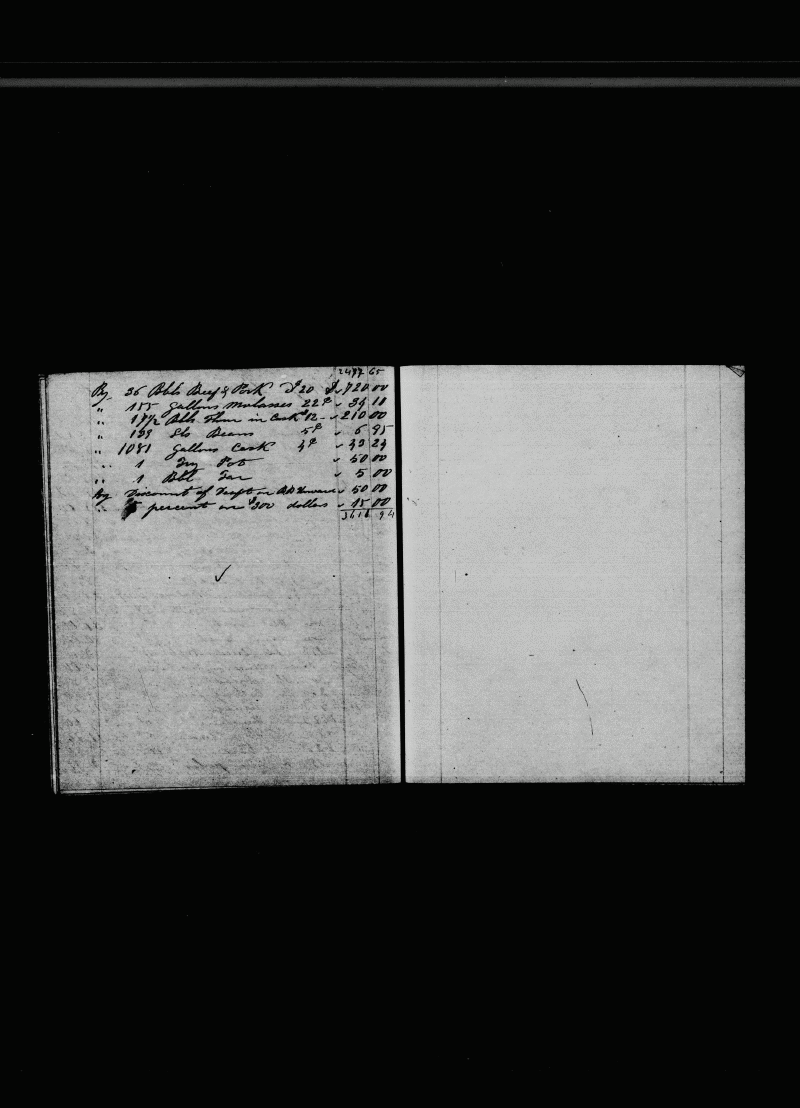 2477 65
By 36 Bbls Beef & Pork $20 $ 720 00
" 155 Gallons Molasses 22¢ 34 10
" 17 1/2 Bbls Flour in Cask $12 - 210 00
" 139 Lbs Beans 5¢ 6 95
" 1081 Gallons Cask 4¢ 43 24
" 1 Try Pot 50 00
" 1 Bbl Tar 5 00
By Discount of on 50 00
" 5 percent on $300 dollars 15 00
3611 94